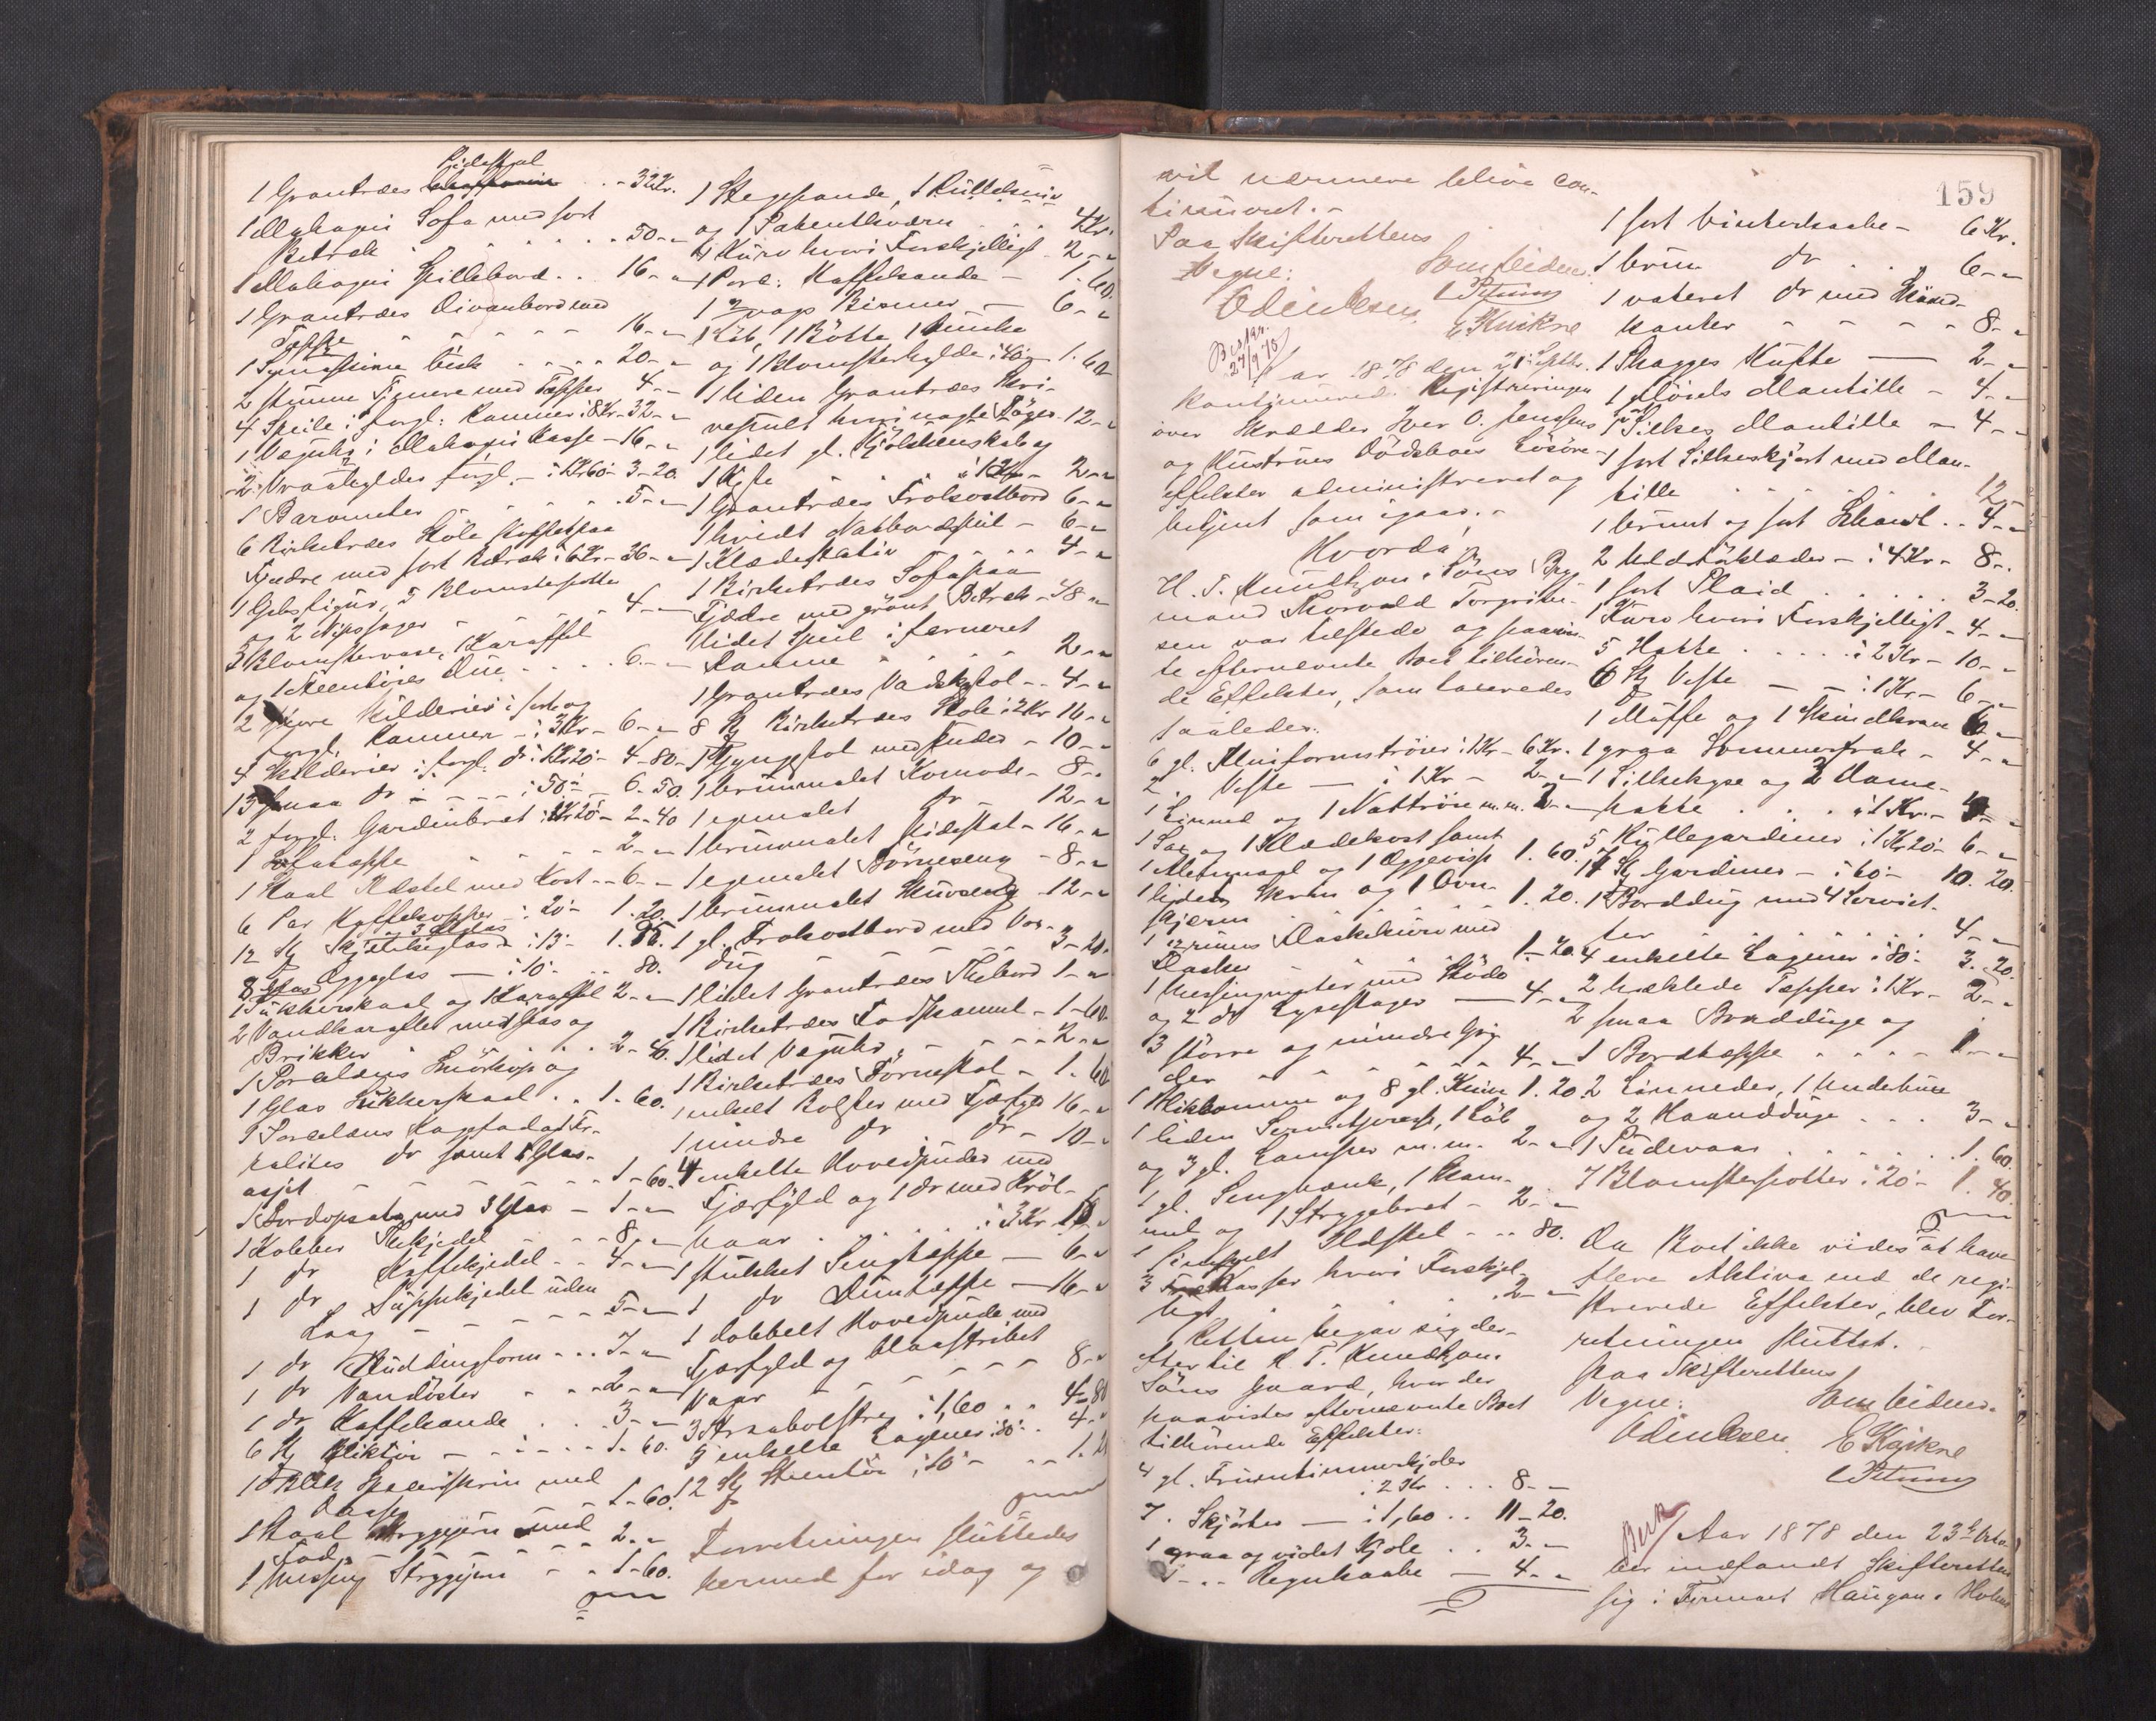 Pidestal
1 Grantræes - 32 Kr.
1 Mahogni Sofa med sort
Betræk - - - - - 50 - "
1 Mahogni Spillebord . . 16 - "
1 Grantræes Divanbord med
Teppe - - - - - 16 - "
20 - "
2 stumme Tjenere med Tepper 4 - "
4 Speile i forgl: Rammer i 8 Kr - 32 - "
1 Væguhr i Mahogni Kasse - 16 - "
2 Vraahylder forgl. - i 1 Kr 60 - 3 - 20.
1 Barometer - - - - 5 - "
6 Birketræes Stole stoppet paa
Fjædre med sort Betræk i 6 Kr - 36 - "
1 Gibsfigur, 5 Blomsterpotte
og 2 Nipssager - - - 4 - "
3 Blomstervase, 1 Karaffel
og 1 Steentøies Due . . . 6 - "
2 større Skilderier i sorte og
forgl. Rammer - i 3 Kr - 6 - "
4 Skilderier i forgl. do i 1 Kr 20 - 4 - 80 -
13 smaa do - - - i 50 - 6 - 50
2 forgl. Gardinbret i 1 Kr 20 - 2 - 40
1 Sofateppe - - - - 2 - "
1 Staal med Kost - - 6 - "
6 Par Kaffekopper - i 20 - 1 . 20.
og 3 Ølglas
12 St i 13 -
8 Æggeglas - i 10 - . . 80.
Glas
1 Sukkerskaal og 1 Karaffel 2 - "
2 Vandkarafler med Glas og
Brikker - - - - 2 - 40.
1 Porcelæns Smörkop og
1 Glas Sukkerskaal . . 1 - 60.
9 Porcelæns Kagefade af
kalites do samt 1 Glas-
asjet - - - - - 1 - 60 -
1 Bordopsats med 3 Glas - 1 - "
1 Kobber Thekjedel - - 8 - "
1 do Kaffekjedel - - 4 - "
1 do Suppekjedel uden
Laag - - - - - 5 - "
1 do Puddingform - - . 7 - "
1 do Vandöster - - - 2 - "
1 do Kaffekande . . . 3 - "
6 St Bliktöi - - - - - 1 - 60.
1 Blik med
Daaser - 1 - 60.
1 Staal Strygejern med
Fod - - - - - 2 - "
1 Messing Strygejern - - 1 - 60.
1 Stegepande, 1
og 1 Patentkværn . . . 4 Kr.
1 Kurv hvori Forskjelligt - 2 - "
1 Porc: Kaffekande - 1 . 60.
1 Bismer - 6 - "
1 Löb, 1 Bötte, 1
og 1 Blomsterhylde i 40 - 1 . 60
1 liden Grantræes Skri-
vepult hvori nogle Böger - 12 - "
1 lidet gl. Kjökkenskab og
1 Kiste . . . i 1 Kr - 2 - "
1 Grantræes Frokostbord 6 - "
1 hvidt Natbordspeil - 6 - "
1 Klædestativ - - - - 4 - "
1 Birketræes Sofa paa
Fjædre med grönt Betræk - 48 "
1 lidet Speil i ferneret
Ramme - - - - - 2 - "
1 Grantræes Vaskestol - - 4 - "
8 St Birketræes Stole i 2 Kr 16 - "
1 Gyngestol med Puder - 10 - "
1 brunmalet Komode - 8 - "
1 egemalet do - 12 - "
1 brunmalet Pidestal - 16 - "
1 egemalet Börneseng - 8 - "
1 brunmalet Skuvseng - 12 - "
1 gl. Frokostbord med Vox-
dug - - - - - 3 - 20.
1 lidet Grantræes Thebord 1 - "
1 Birketræes Fodskammel - 1 - 60.
1 lidet Væguhr - - - - - 2 - "
1 Birketræes Börnestol - 1 . 60
1 enkelt Bolster med Fjærfyld 16 - "
1 mindre do . do - 10 - "
4 enkelte Hovedpuder med
Fjærfyld og 1 do med Kröl-
haar . . . . . i 3 Kr 15 - "
1 stukket Sengteppe - 6 - "
1 do Dunteppe - 16 - "
1 dobbelt Hovedpude med
Fjærfyld og blaastribet
Vaar - - - - - 8 - "
3 Straabolstre i 1,60 . . 4 - 80
5 enkelte Lagener i 80 - . 4 - "
12 St Steentöi i 10 - - - 1 . 20
Forretningen sluttedes
hermed for idag og
159
vil nærmere blive con-
tinueret. -
Paa Skifterettens
Vegne: Som Vidner:
Odinksen. Petersen
E Kvikne
Besk.
27/9 78
Aar 1878 den 21de Septbr.
kontinuerede Registreringen
over Skrædder Iver O. Jenssens
og Hustrues Dödsboes Lösöre-
effekter administreret og
betjent som igaar. -
Hvorda,
H. T. Knudtzon & Söns Byg-
mand Thorvald
sen var tilstede og paavis-
te efternevnte Boet tilhören-
de Effekter, som taxeredes
saaledes.
6 gl. Uniformströier i 1 Kr - 6 Kr.
2 . Veste - i 1 Kr - 2 - "
1 Linned og 1 Nattröie m. m. 2 - "
1 Sax og 1 Klædekost samt
og 1 Æggevisp 1 . 60.
1 lidet Skrin og 1 Ovn-
skjerm - - - - - 1 . 20.
1 12 rums Flaskekurv med
Flasker 1 - 20.
1 Messingmorter med Stöde
og 2 do Lysestager - 4 - "
3 större og mindre Gry-
der - - - - - 4 - "
1 Blikkomme og 8 gl. Knive 1 . 20
1 liden Servietpresse, 1 Löb
og 3 gl. Lamper m. m. 2 - "
1 gl. Sengbænk, 1 Skam-
mel og 1 Strygebret - 2 - "
1 Ildskel - . . 80.
3 Trækasser hvori Forskjel-
ligt . . . . . . 2 - "
Retten begav sig der-
efter til H. T. Knudtzon &
Söns Gaard, hvor der
paavistes efternævnte Boet
tilhörende Effekter:
4 gl. Fruentimmerkjoler
i 2 Kr . . . 8 - -
7 . Skjörter - i 1,60 . . 11 - 20.
1 graa og violet Kjole . . 3 - "
1 - . . Regnkaabe - 4 - "
1 sort Vinterkaabe - 6 Kr.
1 brun do . . . 6 - "
1 vateret do med Skind-
kanter - - - - 8 - "
1 Skagges Kufte - 2 - "
1 Flöiels Mantille - 4 - "
1 Silkes Mantille - 4 - "
1 sort Silkeskjört med Man-
tille . . . . . 12 -
1 brunt og sort Schawl . . 4 - "
2 Uldtöiklæder - i 4 Kr - 8 - .
1 sort Plaid . . . . . 3 - 20.
1 Kurv hvori Forskjelligt - 4 - "
5 Hatte . . . . . i 2 Kr - 10 - "
6 St Veste - - i 1 Kr - 6 - "
1 Muffe og 1 Skindkrave 6 - "
1 graa Sommerfrak - 4 - "
1 Silkekyse og 3 Dame-
hatte . . . . i 1 Kr. - 4 - "
5 Rullegardiner i 1 Kr 20 - 6 - "
17 St Gardiner - i 60 - 10 . 20.
1 Borddug med 4 Serviet-
ter . . . . . . 4 - "
4 enkelte Lagener i 80 - 3 . 20.
2 hæklede Tepper i 1 Kr - 2 - "
2 smaa Bredduge og
1 Bordteppe . . . . . 1 - "
2 Linneder, 1 Underbuxe
og 2 Haandduge . . . 3 - "
1 Pudevaar . . . . . . 1 . 60.
7 Blomsterpotter i 20 - 1 . 40.
Da Boet ikke vides at have
flere Aktiva end de regi-
strerede Effekter, blev For-
retningen sluttet.
paa Skifterettens
Vegne: Som Vidner.
Odinksen. E Kvikne
Petersen
Besk
Aar 1878 den 23de Octo-
ber indfandt Skifteretten
sig i Firmaet Haugan &